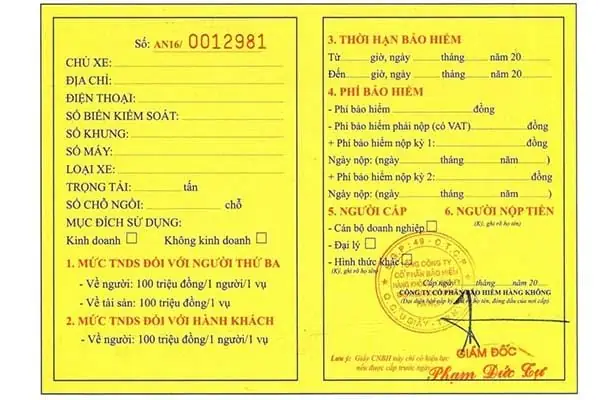 Số: AN16/ 0012981
CHỦ XE:
ĐỊA CHỈ:
ĐIỆN THOẠI:
SỐ BIỂN KIỂM SOÁT:
SỐ KHUNG:
SỐ MÁY:
LOẠI XE:
TRỌNG TẢI: tấn
SỐ CHỖ NGỒI: chỗ
MỤC ĐÍCH SỬ DỤNG:
Kinh doanh □ Không kinh doanh □
1. MỨC TNDS ĐỐI VỚI NGƯỜI THỨ BA
- Về người: 100 triệu đồng/1 người/1 vụ
- Về tài sản: 100 triệu đồng/1 vụ
2. MỨC TNDS ĐỐI VỚI HÀNH KHÁCH
- Về người: 100 triệu đồng/1 người/1 vụ
3. THỜI HẠN BẢO HIỂM
Từ giờ, ngày tháng năm 20
Đến giờ, ngày tháng năm 20
4. PHÍ BẢO HIỂM
- Phí bảo hiểm đồng
- Phí bảo hiểm phải nộp (có VAT) đồng
+ Phí bảo hiểm nộp kỳ 1: đồng
Ngày nộp: (ngày tháng năm )
+ Phí bảo hiểm nộp kỳ 2: đồng
Ngày nộp: (ngày tháng năm )
5. NGƯỜI CẤP 6. NGƯỜI NỘP TIỀN
- Cán bộ doanh nghiệp □ (Ký, ghi rõ họ tên)
- Đại lý □
- Hình thức khác □
(Ký, ghi rõ họ tên)
TỔNG CÔNG TY
CỔ PHẦN BẢO HIỂM
HÀNG KHÔNG
Cấp ngày tháng năm 20
CÔNG TY CỔ PHẦN BẢO HIỂM HÀNG KHÔNG
GIÁM ĐỐC
Lưu ý: Giấy CNBH này chỉ có hiệu lực
nếu được cấp trước ngày
Phạm Đức Tự